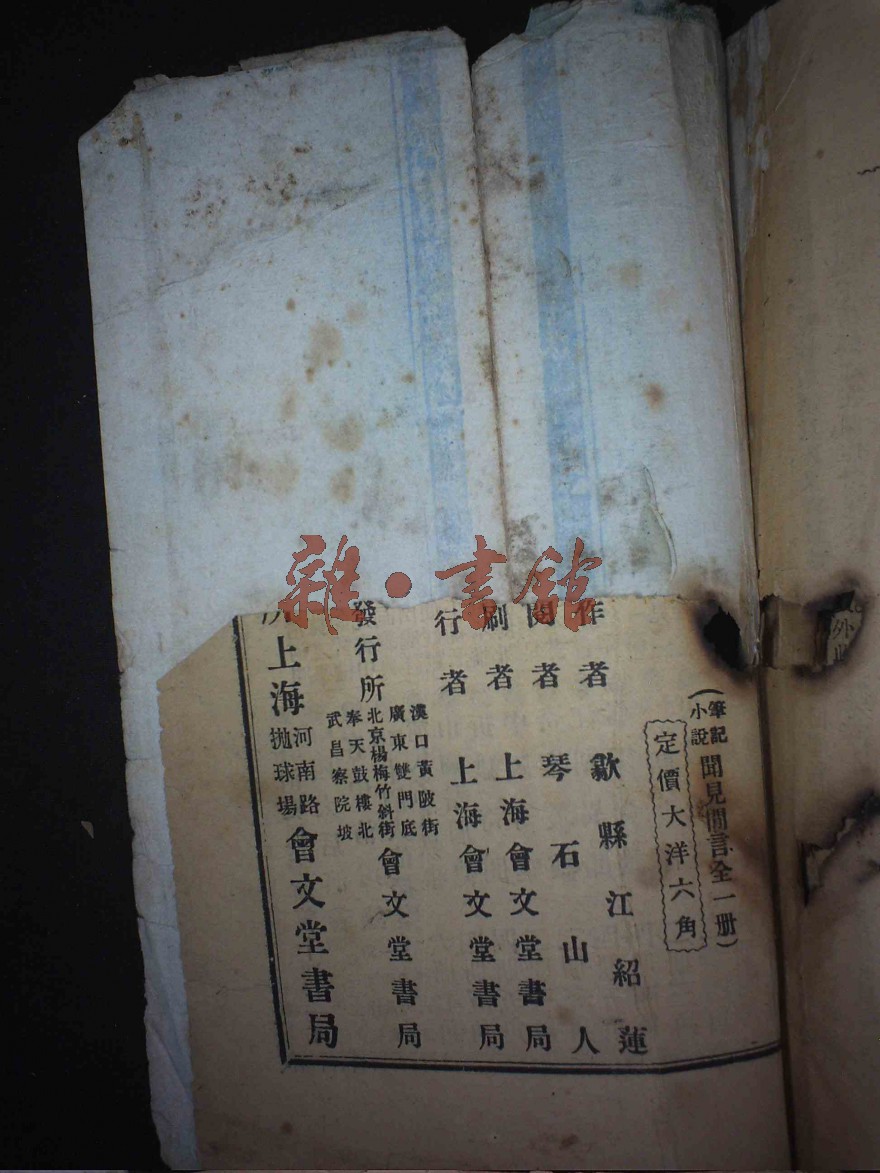 (筆記小說 聞見閒言全一册)
定價大洋六角
作者 歙縣江紹蓮
閱者 琴石山人
刷者 上海會文堂書局
行者 上海會文堂書局
漢口黃陂街
廣東雙門底
北京楊梅竹斜街
奉天鼓樓北
武昌察院坡
發行所 會文堂書局
上海 河南路 拋球場 會文堂書局
雜·書館
外